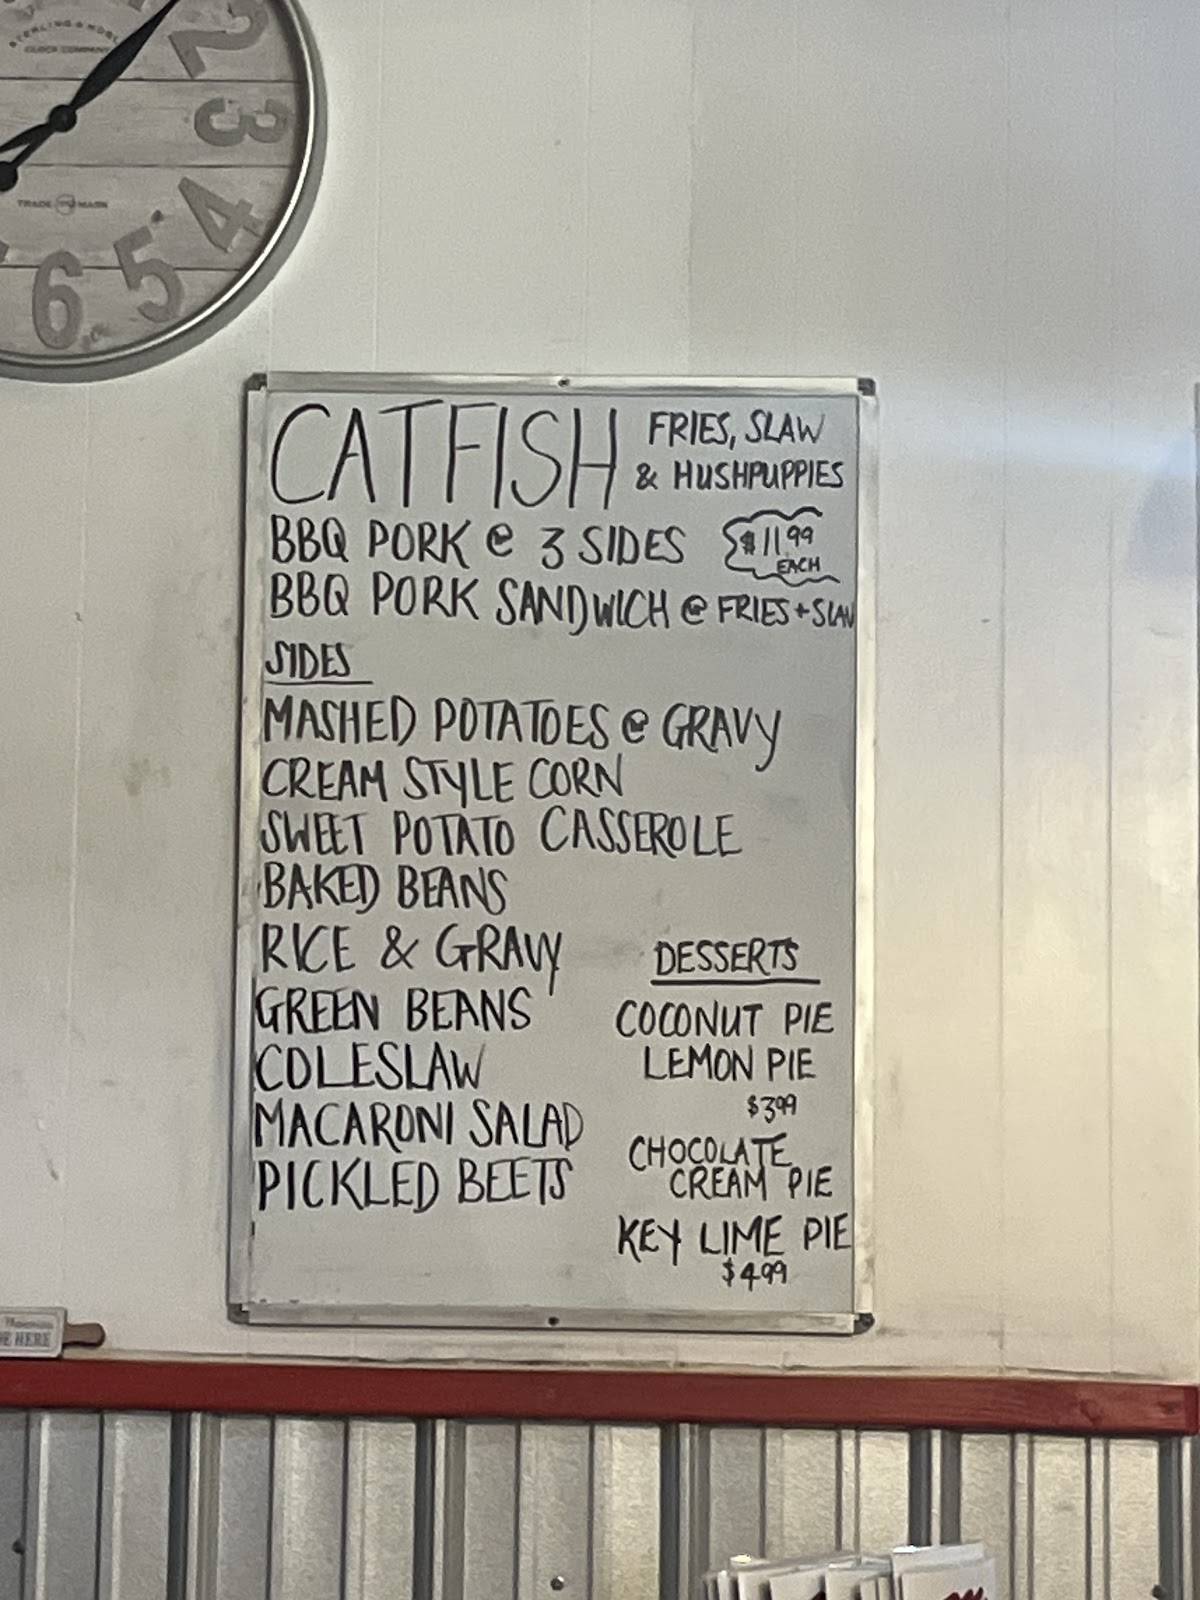 STERLING & NOBLE
CLOCK COMPANY
2
3
4
5
6
TRADE MARK
CATFISH FRIES, SLAW
& HUSHPUPPIES
BBQ PORK @ 3 SIDES $11.99
EACH
BBQ PORK SANDWICH @ FRIES + SLAW
SIDES
MASHED POTATOES @ GRAVY
CREAM STYLE CORN
SWEET POTATO CASSEROLE
BAKED BEANS
RICE & GRAVY
GREEN BEANS
COLESLAW
MACARONI SALAD
PICKLED BEETS
DESSERTS
COCONUT PIE
LEMON PIE
$3.99
CHOCOLATE
CREAM PIE
KEY LIME PIE
$4.99
HERE